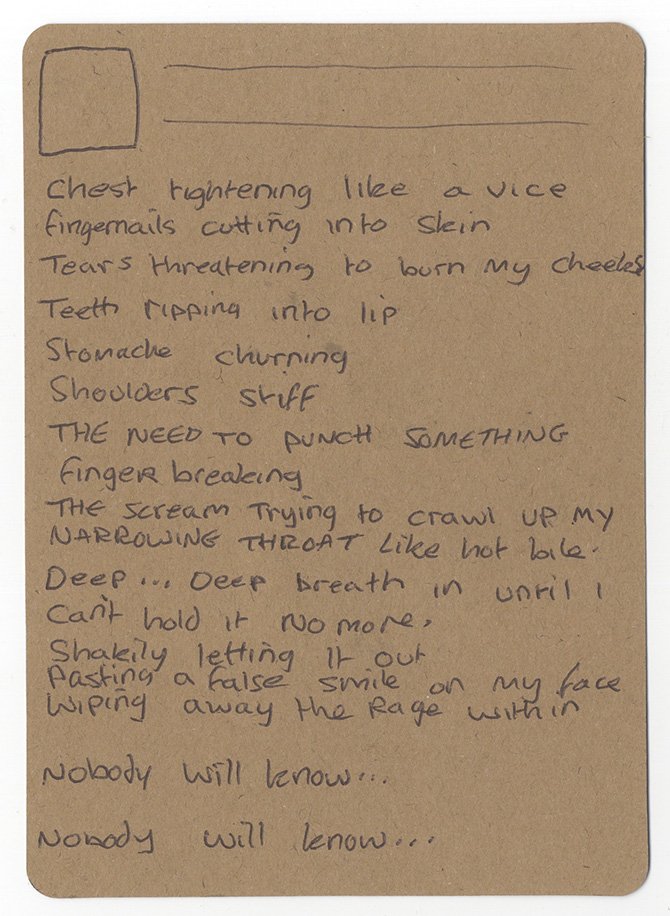 Chest tightening like a vice
fingernails cutting into skin
Tears threatening to burn my cheeks
Teeth ripping into lip
Stomache churning
Shoulders stiff
THE NEED TO PUNCH SOMETHING
finger breaking
THE scream Trying to crawl UP MY
NARROWING THROAT Like hot bile.
Deep... Deep breath in until I
Can't hold it no more,
Shakily letting It out
Pasting a false smile on my face
Wiping away the Rage within
Nobody will know...
Nobody will know...